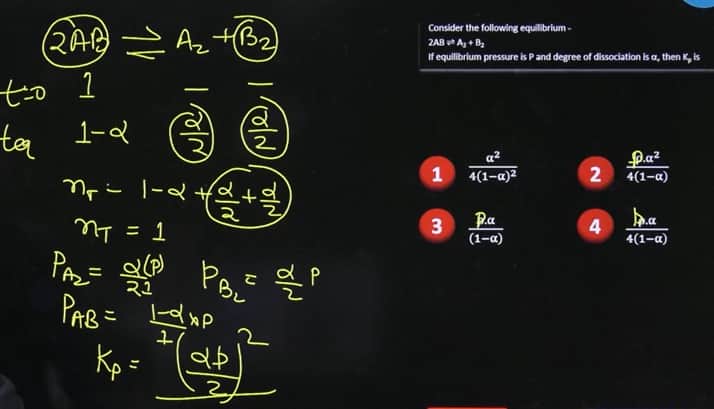 2AB ⇌ A₂ + B₂
t=0 1 – –
teq 1-α α/2 α/2
n_T = 1-α + α/2 + α/2
n_T = 1
P_A₂ = α(P)/2·1 P_B₂ = α/2 P
P_AB = 1-α/1 × P
Kp = (αp/2)²
Consider the following equilibrium -
2AB ⇌ A₂ + B₂
If equilibrium pressure is P and degree of dissociation is α, then Kₚ is
1 α²/4(1−α)²
2 p.α²/4(1−α)
3 P.α/(1−α)
4 p.α/4(1−α)